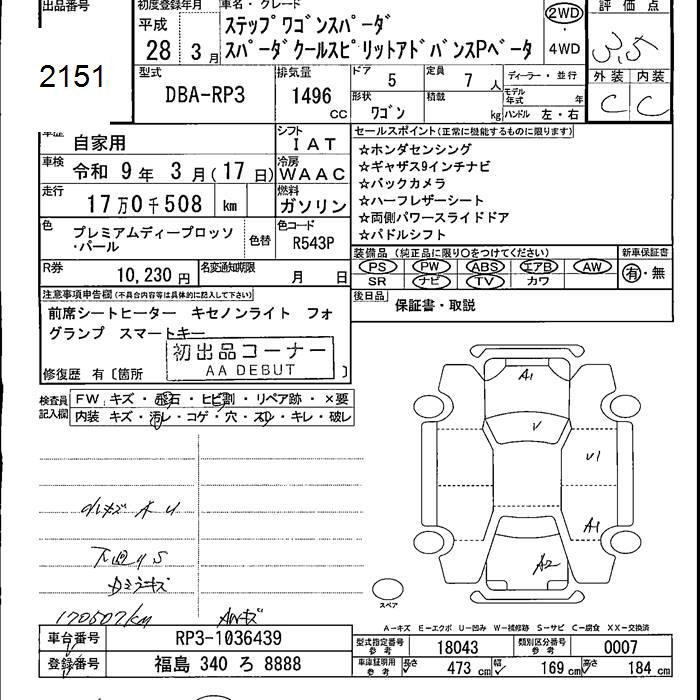 出品番号
2151
初度登録年月
平成
28年3月
車名・グレード
ステップワゴンスパーダ
スパーダクールスピリットアドバンスPベータ
2WD
・
4WD
評価点
3.5
外装 内装
C C
型式
DBA-RP3
排気量
1496
CC
ドア 5
定員 7人
形状 ワゴン
積載 kg
ディーラー・並行
モデル年式 年
ハンドル 左・右
車歴
自家用
シフト
IAT
車検
令和 9年 3月(17日)
冷房
WAAC
走行
17万0千508 km
燃料
ガソリン
色
プレミアムディープロッソ
・パール
色替
色コード
R543P
R券
10,230円
名変通知期限
月 日
セールスポイント(正常に機能するものに限ります)
☆ホンダセンシング
☆ギャザス9インチナビ
☆バックカメラ
☆ハーフレザーシート
☆両側パワースライドドア
☆パドルシフト
装備品 (純正品に限り〇をつけてください)
PS PW ABS エアB AW
SR ナビ TV カワ
新車保証書
有・無
後日品
保証書・取説
注意事項申告欄(不具合内容等は具体的に記入して下さい)
前席シートヒーター キセノンライト フォ
グランプ スマートキー
初出品コーナー
AA DEBUT
修復歴 有〔箇所 〕
検査員
記入欄
FW.キズ・飛石・ヒビ割・リペア跡・×要
内装 キズ・汚レ・コゲ・穴・スレ・キレ・破レ
A1
V
U1
A1
A2
下回りS
170507km
AWキズ
スペア
A−キズ E−エクボ U−凹み W−補修跡 S−サビ C−腐食 XX−交換済
車台番号
RP3-1036439
型式指定番号
参考
18043
類別区分番号
参考
0007
登録番号
福島 340 ろ 8888
車庫証明用
参考
長さ 473 cm
幅 169 cm
高さ 184 cm